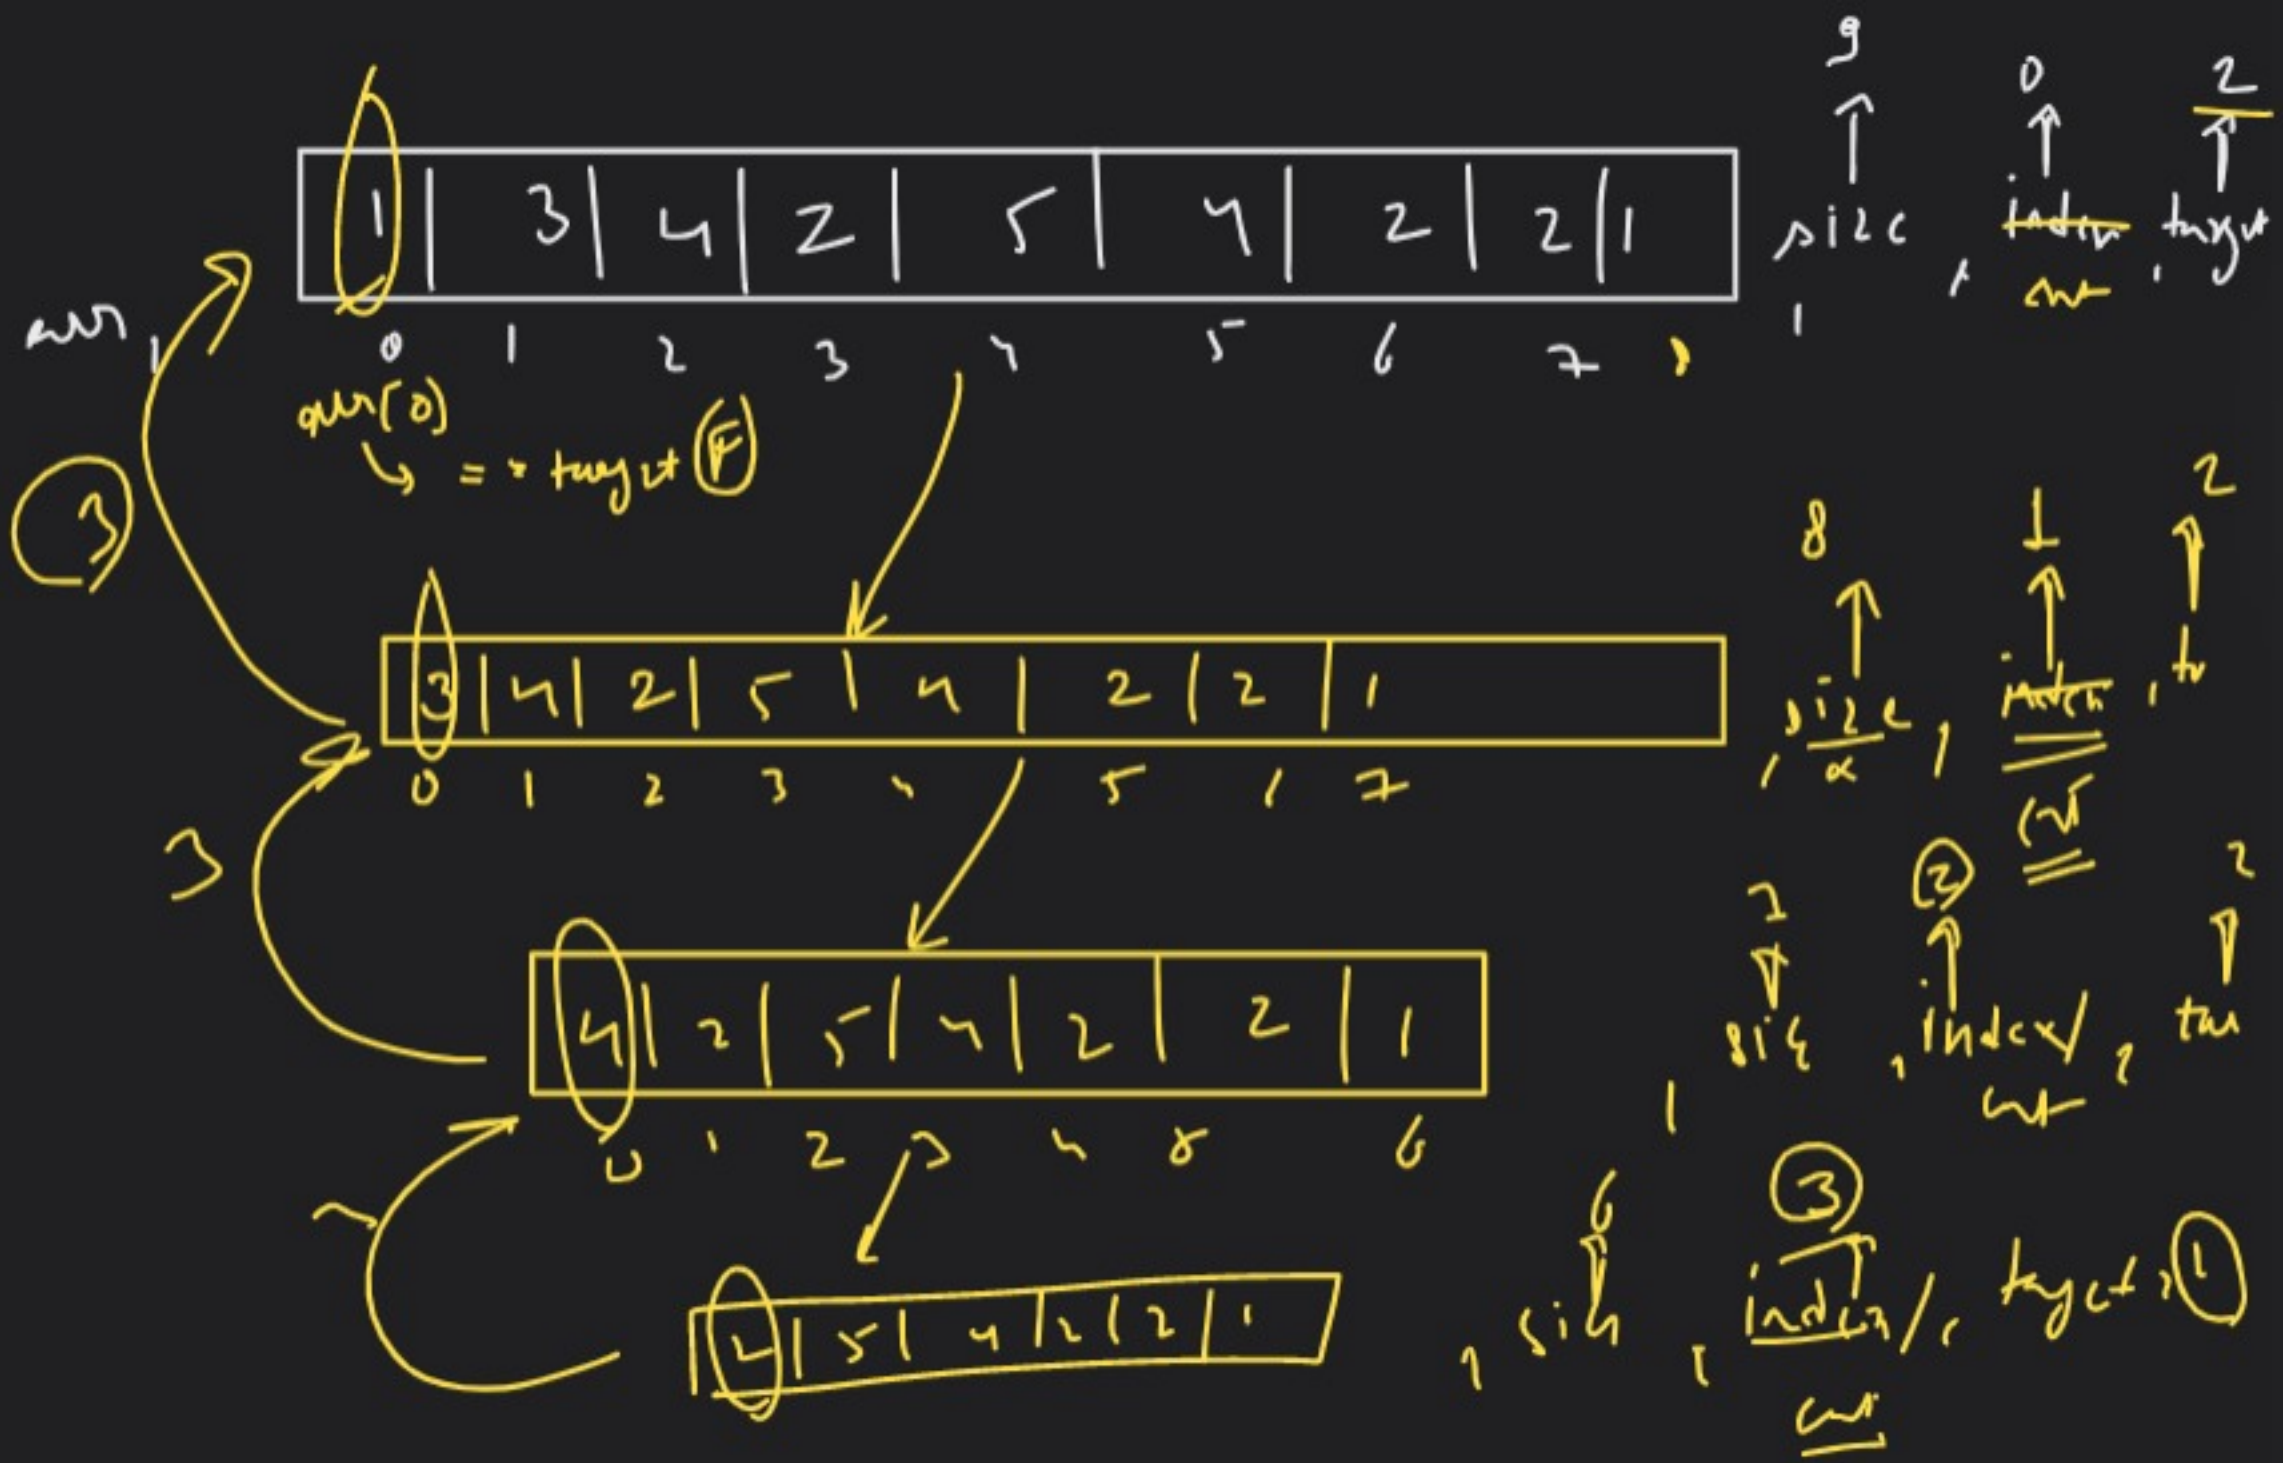 9 0 2
1 | 3 | 4 | 2 | 5 | 4 | 2 | 2 | 1
size , index , target
arr , cnt ,
0 1 2 3 4 5 6 7 8
arr[0]
== target F
3
8 1 2
3 | 4 | 2 | 5 | 4 | 2 | 2 | 1
, size , index , tar
0 1 2 3 4 5 6 7
cnt
3
7 2 2
4 | 2 | 5 | 4 | 2 | 2 | 1
, size , index / , tar
cnt
0 1 2 3 4 5 6
6 3
2 | 5 | 4 | 2 | 2 | 1
, size , index / , target
cnt